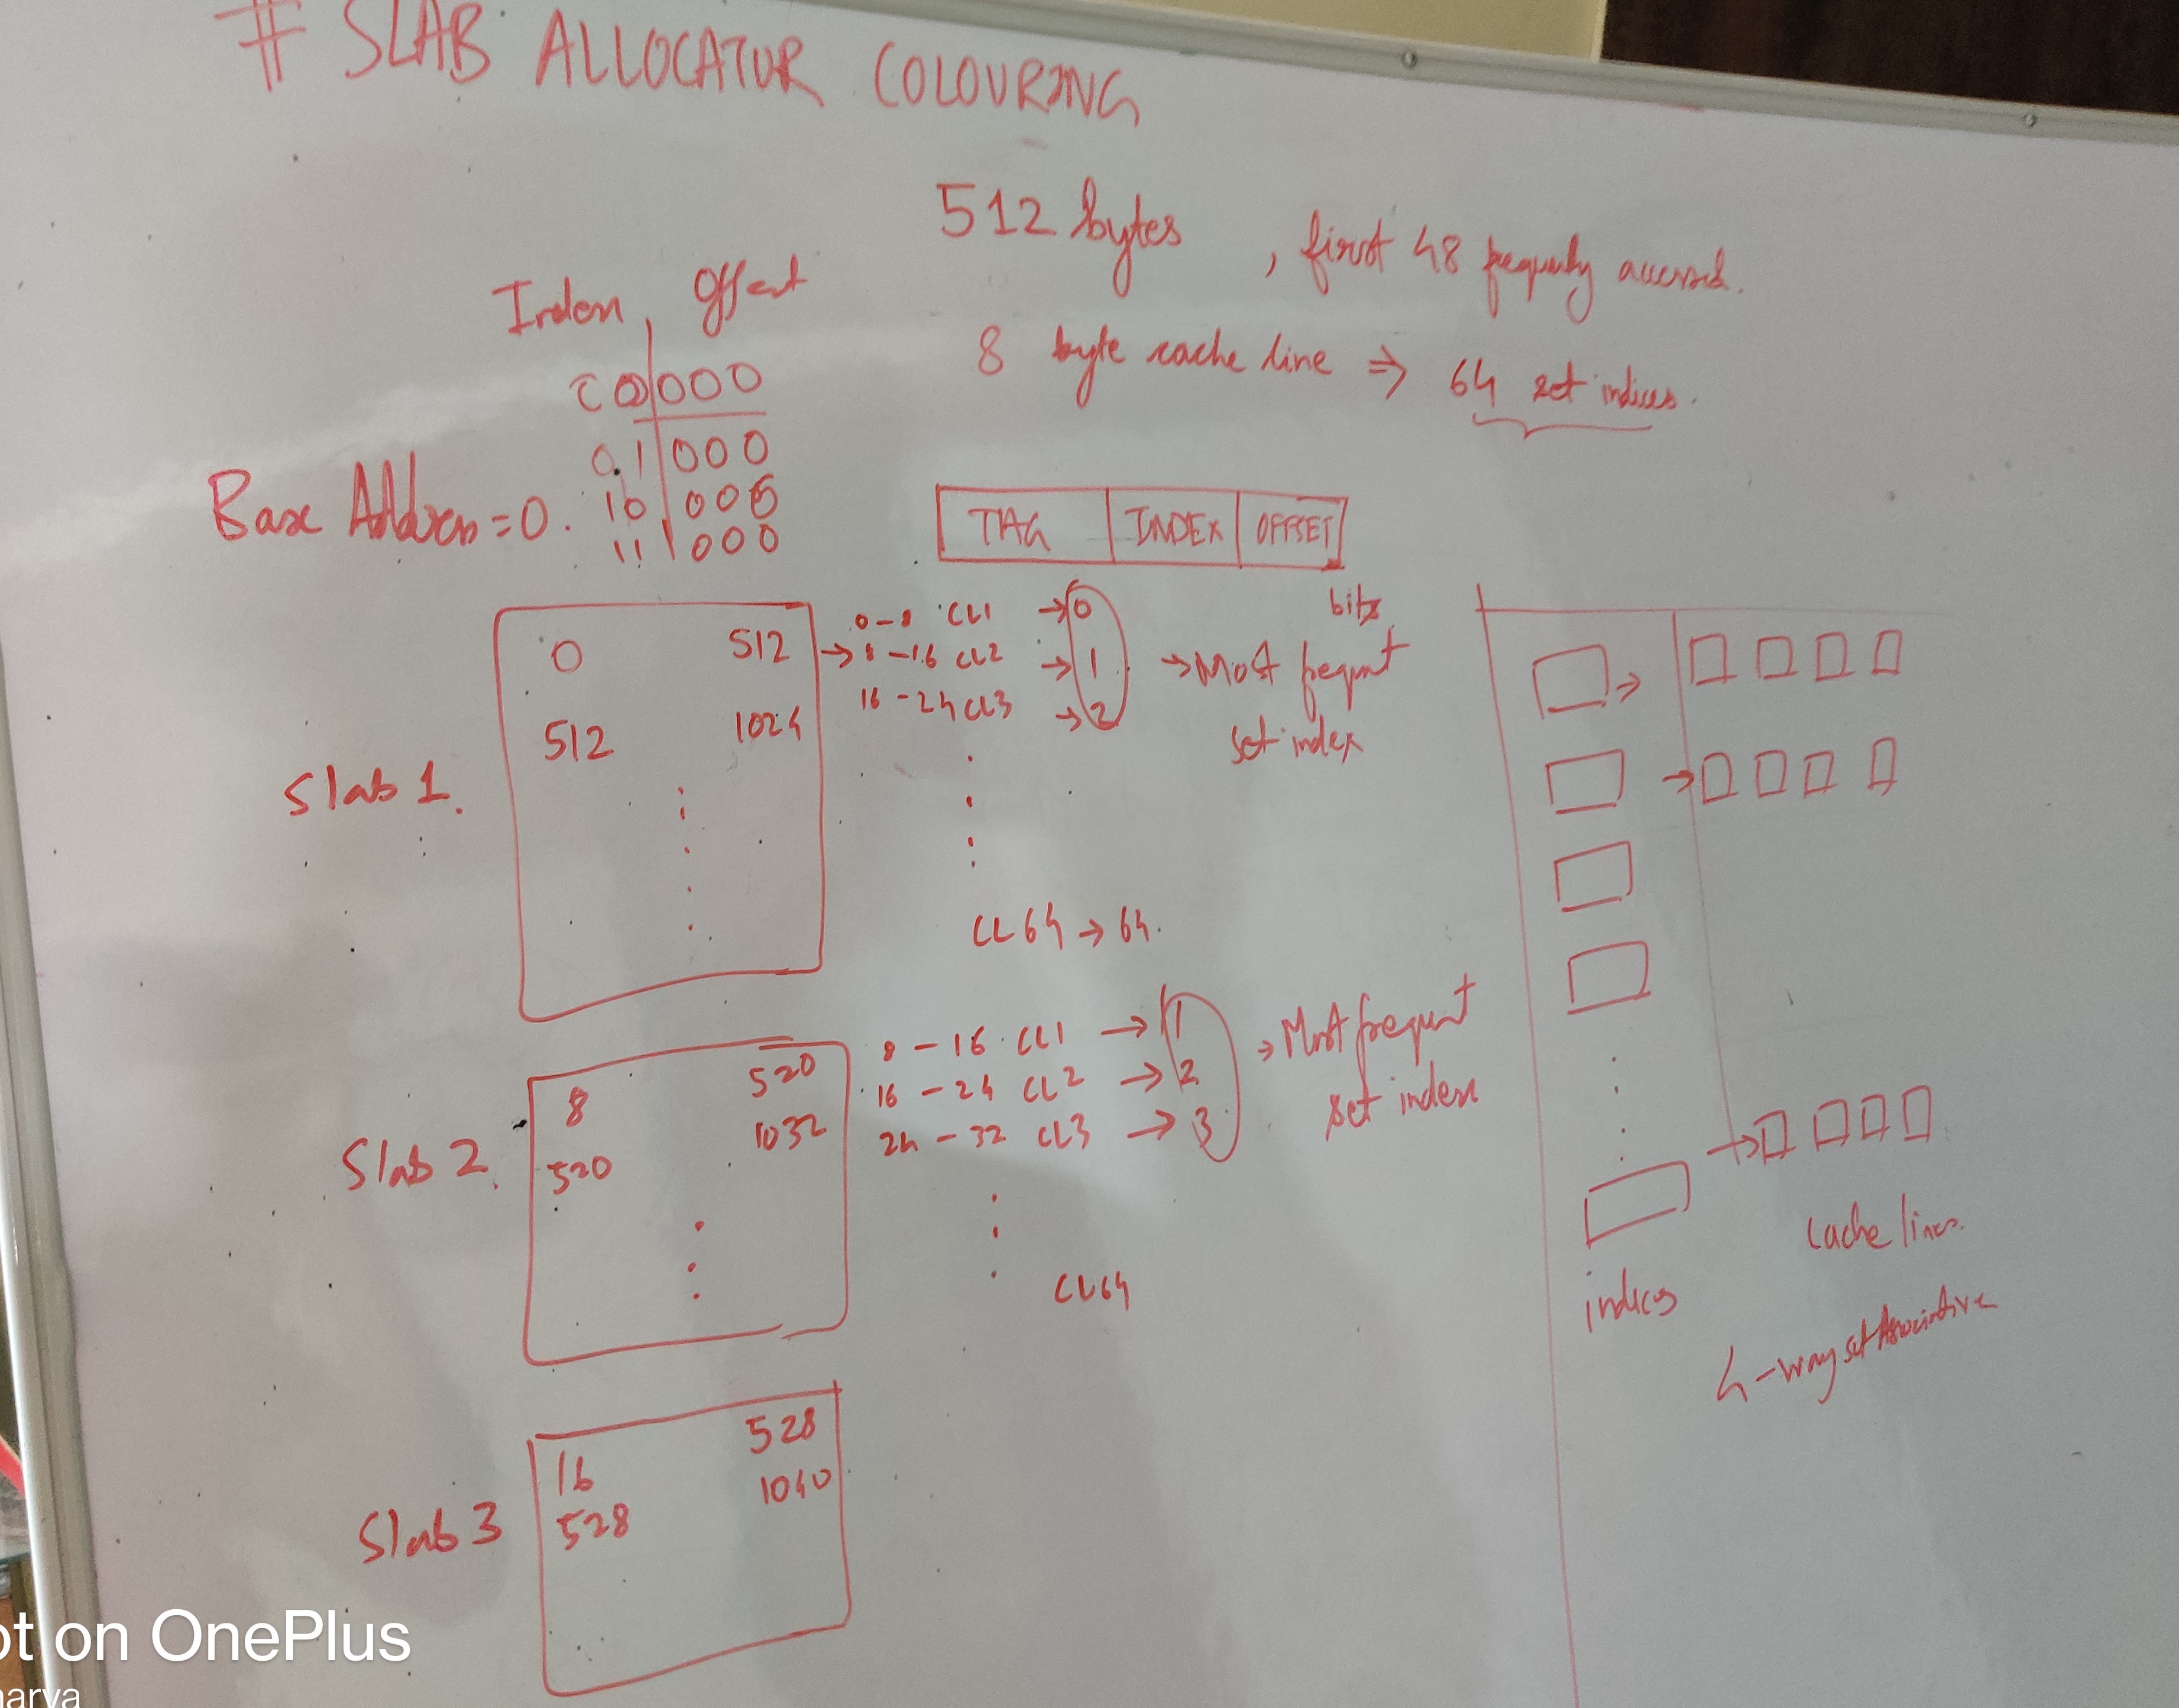 # SLAB ALLOCATOR COLOURING
512 bytes , first 48 frequently accessed.
8 byte cache line ⇒ 64 set indices.
Index Offset
00 000
01 000
10 000
11 000
Base Address = 0.
TAG INDEX OFFSET
bits
Slab 1.
0 512
512 1024
0-8 CL1 → 0
→ 8-16 CL2 → 1
16-24 CL3 → 2
→ Most frequent
set index
CL64 → 64.
Slab 2.
8 520
520 1032
8-16 CL1 → 1
16-24 CL2 → 2
24-32 CL3 → 3
→ Most frequent
set index
CL64
Slab 3
16 528
528 1040
indices
cache lines.
4-way set Associative
ot on OnePlus